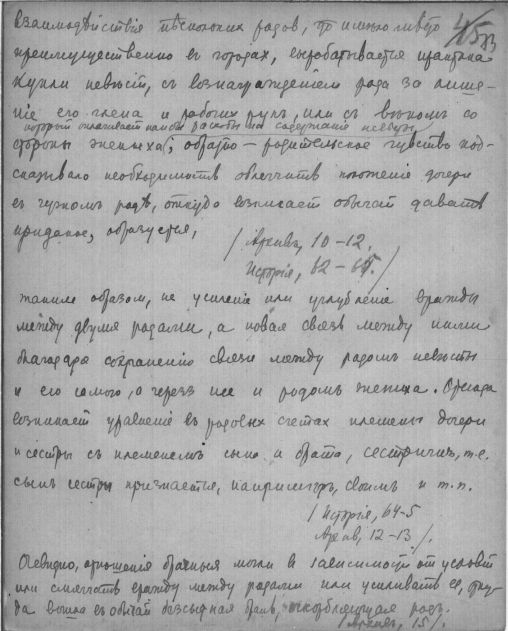 взаимодѣйствія нѣсколькихъ родовъ, что имѣло мѣсто
преимущественно въ городахъ, вырабатывается практика
купли невѣстъ, съ вознагражденіемъ рода за лише-
ніе его члена и рабочихъ рукъ, или съ вѣномъ со
который оплачиваетъ расходы на содержаніе невѣсты
стороны жениха; обратно – родительское чувство под-
сказывало необходимость облегчить положеніе дочери
въ чужомъ родѣ, откуда возникаетъ обычай давать
приданое, образуется,
/ Архивъ, 10–12.
Исторія, 62–65. /
такимъ образомъ, не усиленіе или углубленіе вражды
между двумя родами, а новая связь между ними
благодаря сохраненію связи между родомъ невѣсты
и его самого, а черезъ нее и родомъ жениха. Отсюда
возникаетъ уравненіе въ родовыхъ счетахъ племени дочери
и сестры съ племенемъ сына и брата, сестричичъ, т.е.
сынъ сестры признается, напримѣръ, своимъ и т.п.
/ Исторія, 64–5
Архив, 12–13 /.
Очевидно, отношенія брачныя могли въ зависимости от условій
или смягчать вражду между родами или усиливать ее, отку-
да вошла въ обычай безсудная брань, оскорбляющая родъ.
/ Архивъ, 15 /.